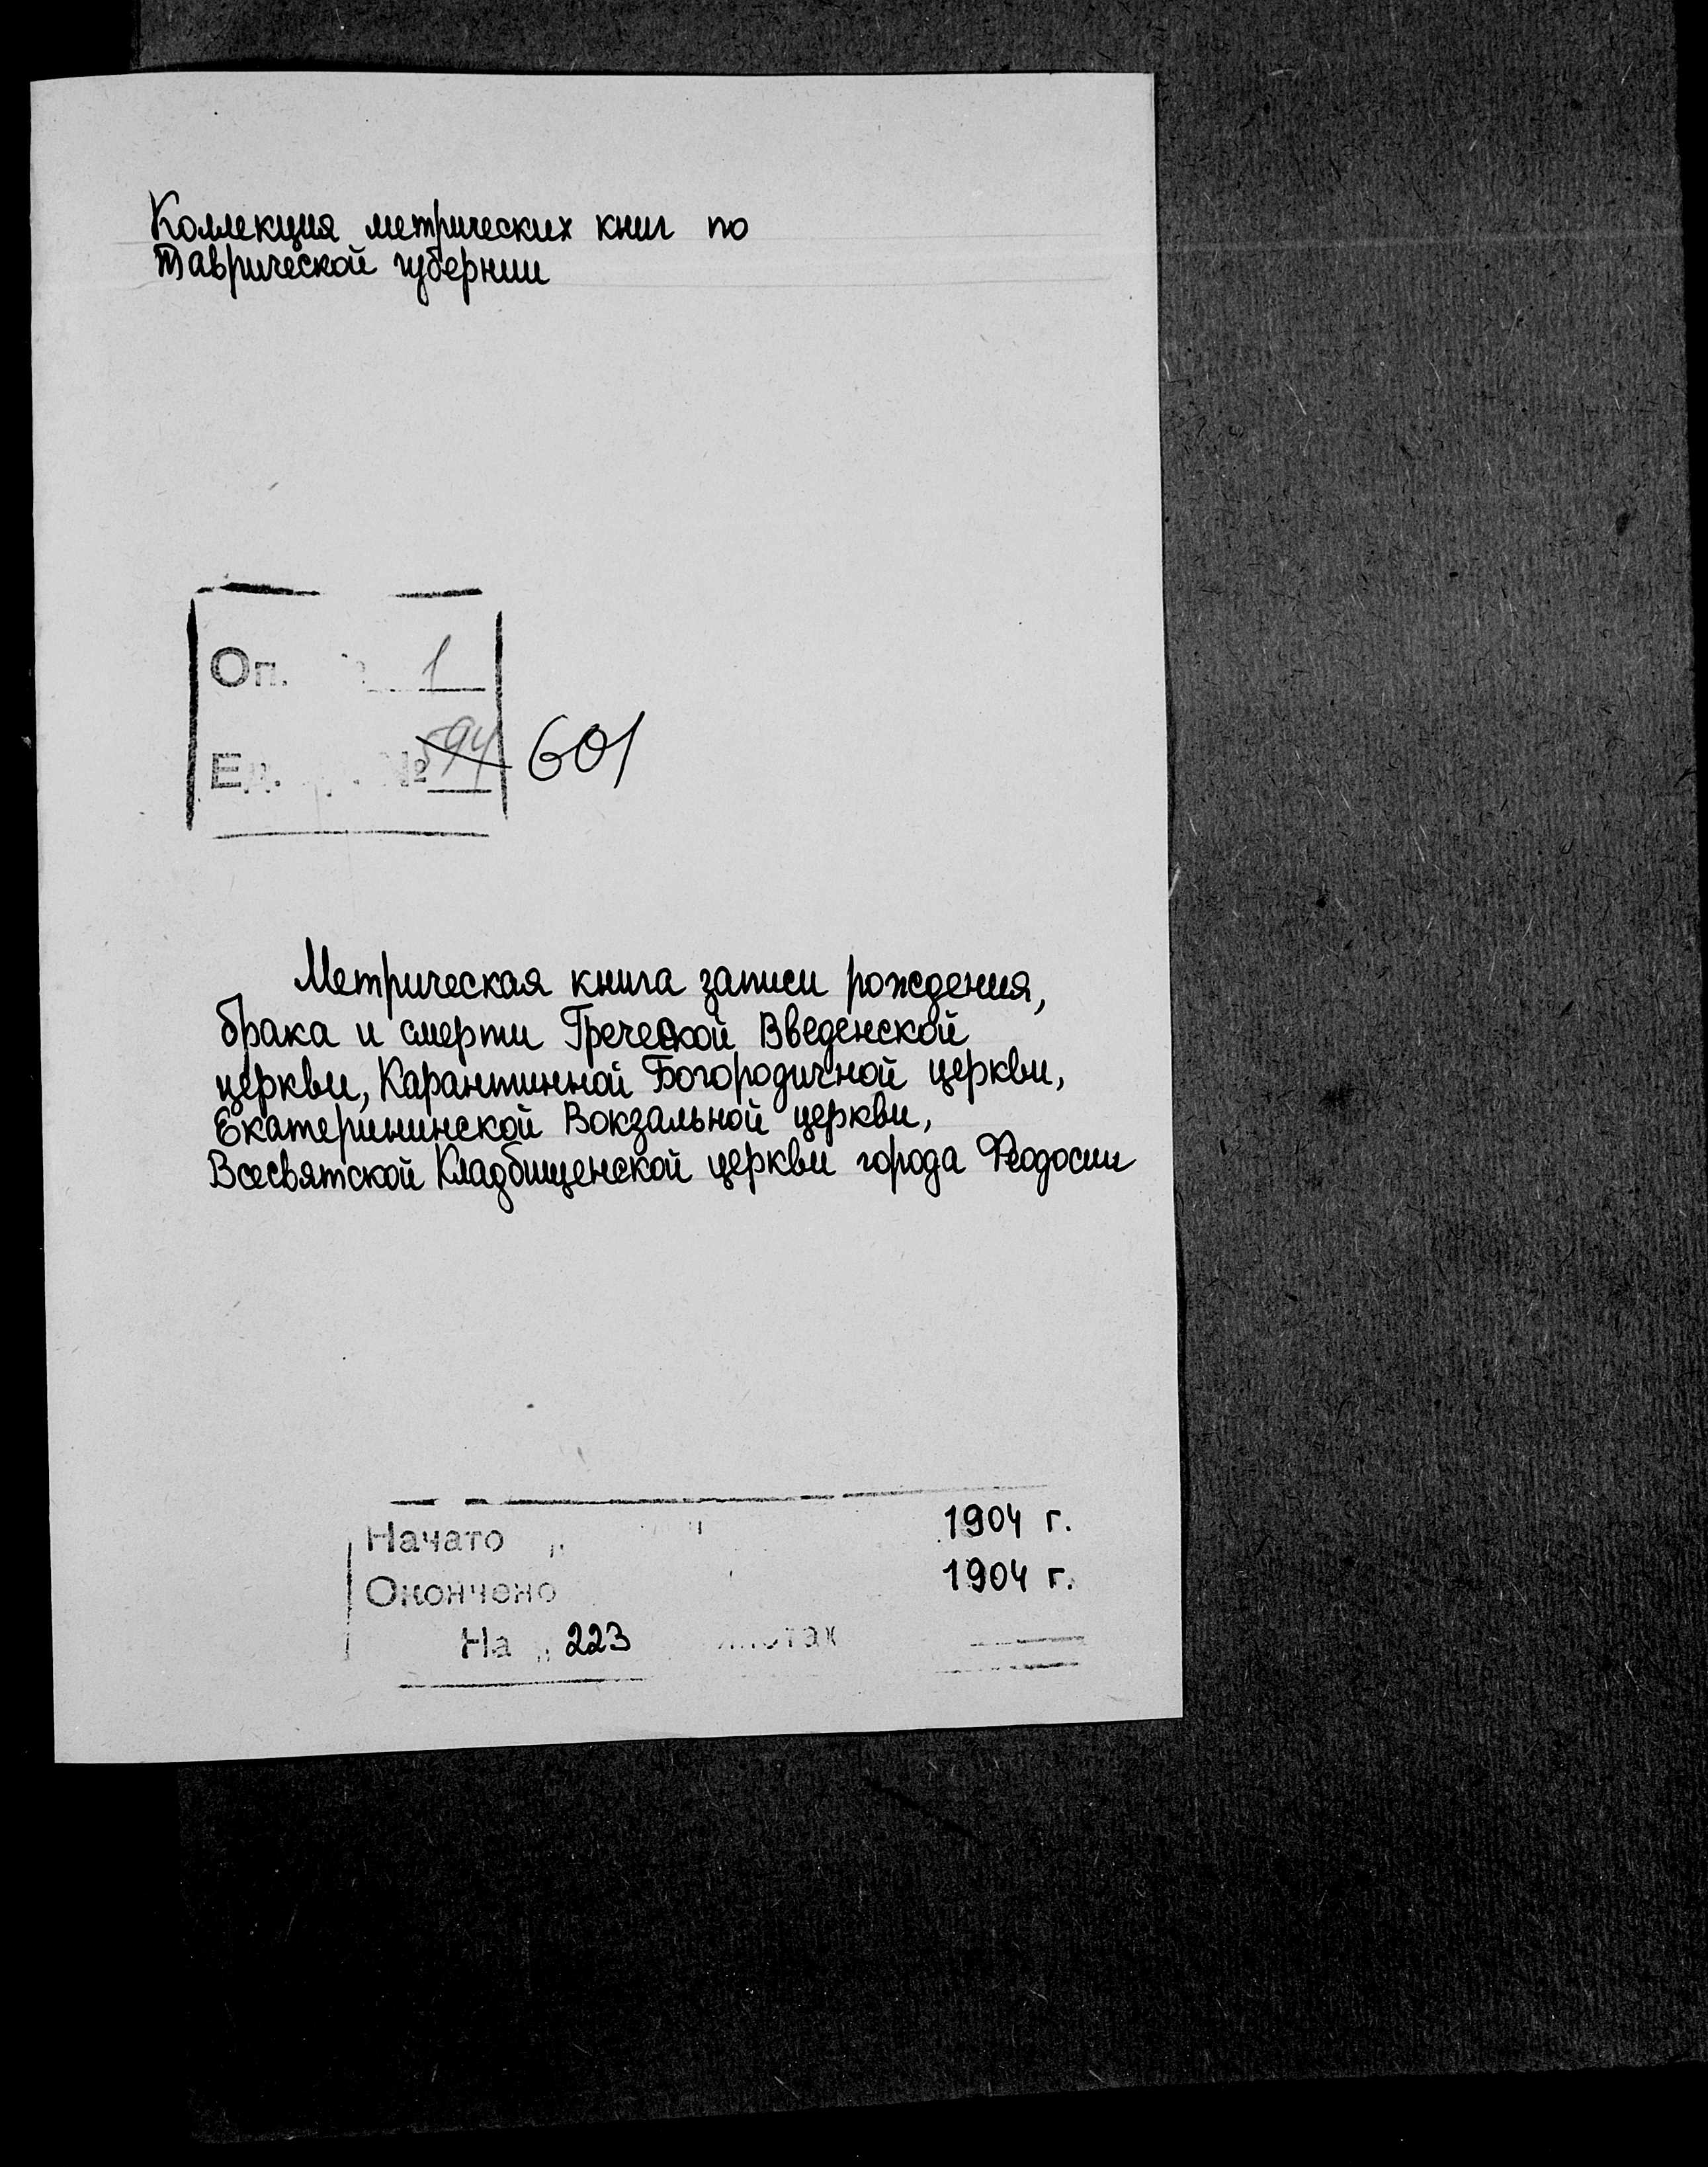 Коллекция метрических книг по
Таврической губернии
Оп. 1
Ед. № 594 601
Метрическая книга записи рождения,
брака и смерти Греческой Введенской
церкви, Карантинной Богородичной церкви,
Екатерининской Вокзальной церкви,
Всесвятской Кладбищенской церкви города Феодосии
Начато „ " 1904 г.
Окончено 1904 г.
На „ 223 листах